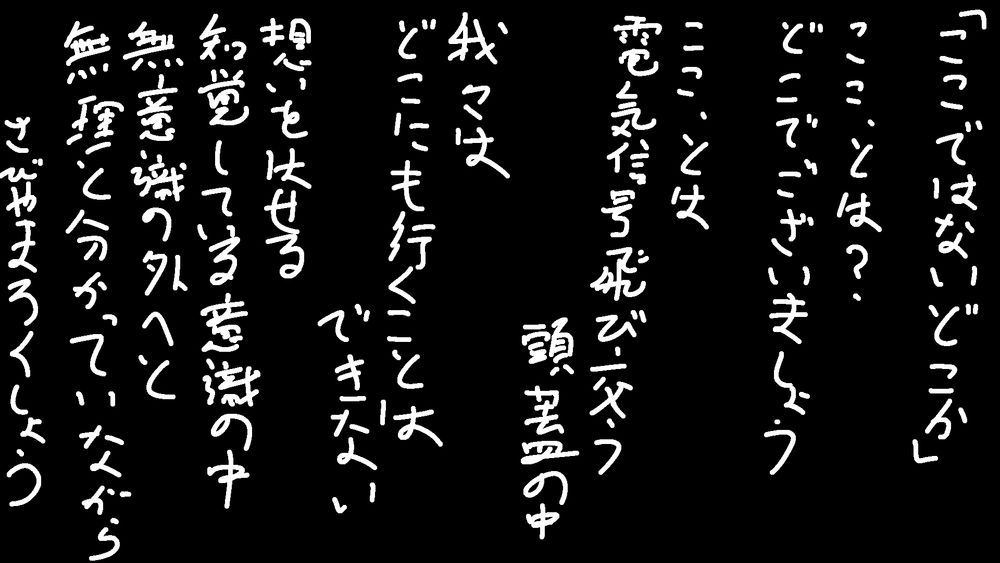 「ここではないどこか」
ここ、とは?
どこでございましょう
ここ、とは
電気信号飛び交う
頭蓋の中
我々は
どこにも行くことは
できない
想いをはせる
知覚している意識の中
無意識の外へと
無理と分かっていながら
さびやまろくしょう